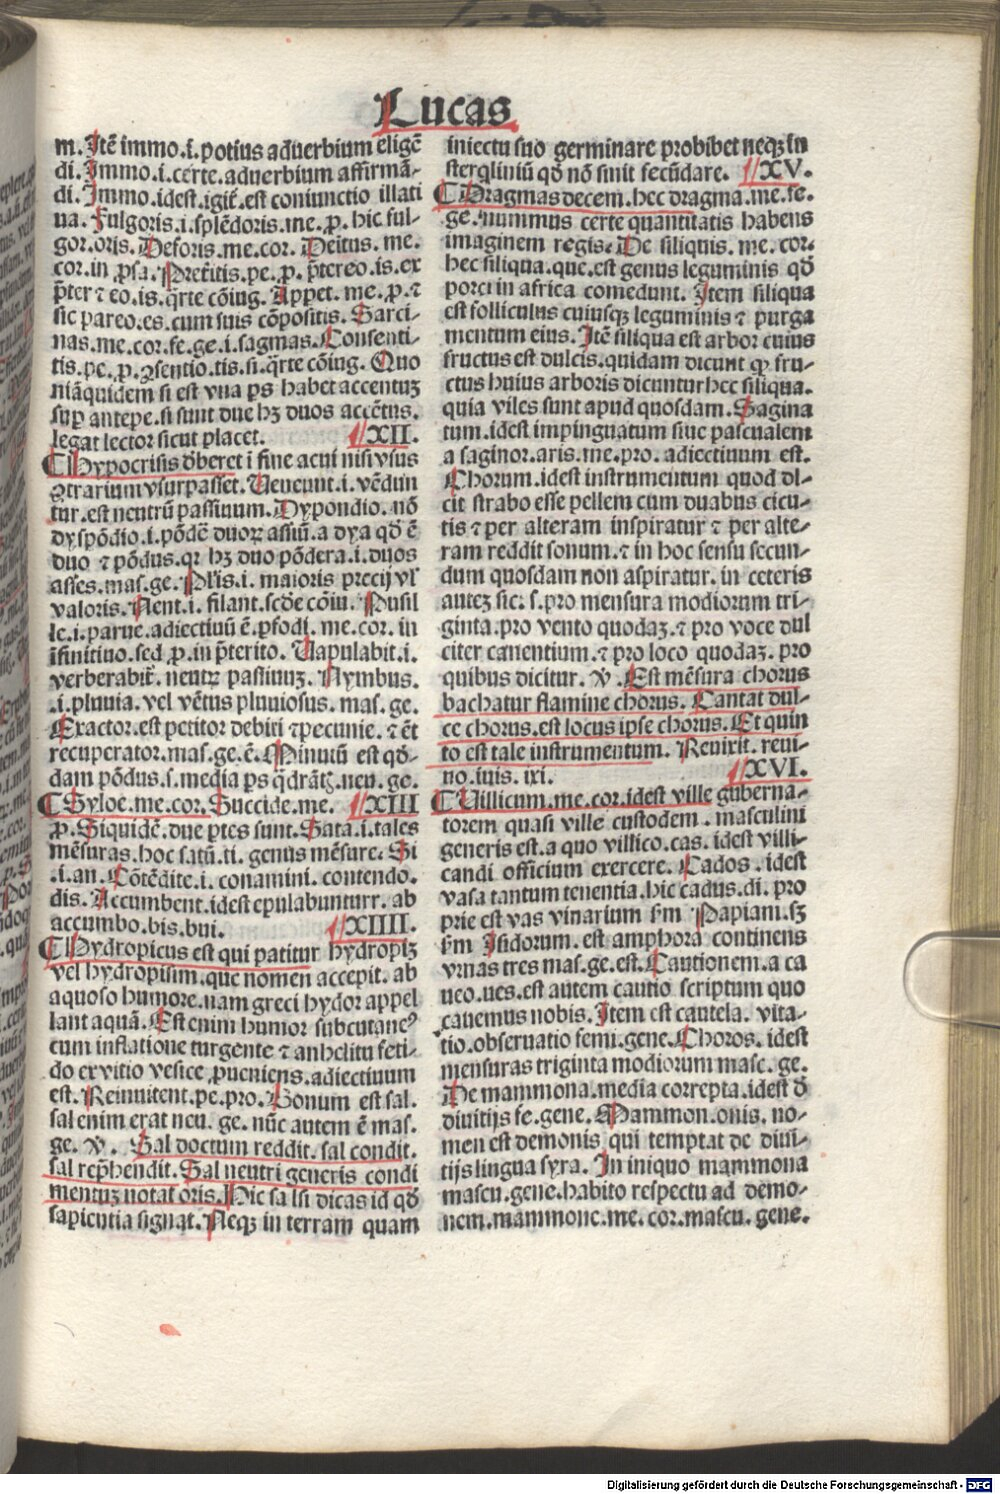 Lucas
m. Itē immo .i. potius aduerbium eligē
di. Immo .i. certe. aduerbium affirmā⸗
di. Immo .idest. igit̄. est coniunctio illati
ua. Fulgoris .i. splēdoris. me. ꝓ. hic ful⸗
gor. oris. Deforis. me. cor. Deitus. me.
cor. in ꝓsa. Pret̄itis. pe. ꝓ. p̄tereo. is. ex
p̄ter ⁊ eo. is. q̄rte cōiug. Appet. me. ꝓ. ⁊
sic pareo. es. cum suis cōpositis. Sarci⸗
nas. me. cor. fe. ge. i. sagmas. Consenti⸗
tis. pe. ꝓ. ꝯsentio. tis. si. q̄rte cōiug. Quo
niā quidem si est vna ps habet accentuꝫ
suꝑ antepe. si sunt due hꝫ duos accētus.
legat lector sicut placet. XII.
Hypocrisis dēberet ī fine acui nisi vsus
ꝯtrarium vsurpasset. Ueneunt .i. vēdun
tur. est neutrū passiuum. Dypondio. nō
dyspōdio .i. pōdē duoꝝ assiū. a dya qd̄ ē
duo ⁊ pōdus. qꝛ hꝫ duo pōdera .i. duos
asses. mas. ge. Pl̄is .i. maioris precij vl̄
valoris. Nent .i. filant. scd̄e cōiu. Pusil
le .i. parue. adiectiuū ē. ꝑfodi. me. cor. in
īfinitiuo. sed ꝓ. in p̄terito. Uapulabit .i.
verberabit̄. neutꝝ passiuuꝫ. Nymbus.
.i. pluuia. vel vētus pluuiosus. mas. ge.
Exactor. est petitor debiti ⁊ pecunie. ⁊ ēt
recuperator. mas. ge. ē. Minutū est qd̄⸗
dam pōdus. s. media ps q̄drātꝭ. neu. ge.
Syloe. me. cor. Succide. me. XIII
ꝓ. Siquidē. due ꝑtes sunt. Sata .i. tales
mēsuras. hoc satū. ti. genus mēsure. Si
.i. an. Cōtēdite .i. conamini. contendo.
dis. Accumbent. idest epulabuntur. ab
accumbo. bis. bui. XIIII.
Hydropicus est qui patitur hydropiꝫ
vel hydropisim. que nomen accepit. ab
aquoso humore. nam greci hydor appel
lant aquā. Est enim humor subcutaneꝰ
cum inflatione turgente ⁊ anhelitu feti⸗
do ex vitio vesice ꝓueniens. adiectiuum
est. Reinuitent. pe. pro. Bonum est sal.
sal enim erat neu. ge. nūc autem ē mas.
ge. ꝟ. Sal doctum reddit. sal condit.
sal rep̄hendit. Sal neutri generis condi
mentuꝫ notat oris. Hic sa lsi dicas id qd̄
sapientia signat. Neqꝫ in terram quam
iniectu suo germinare prohibet neqꝫ in
sterqliniū qd̄ nō sinit fecūdare. XV.
Dragmas decem. hec dragma. me. fe.
ge. nummus certe quantitatis habens
imaginem regis. De siliquis. me. cor.
hec siliqua. que. est genus leguminis qd̄
porci in africa comedunt. Item siliqua
est folliculus cuiusqꝫ leguminis ⁊ purga
mentum eius. Itē siliqua est arbor cuius
fructus est dulcis. quidam dicunt ꝙ fru⸗
ctus huius arboris dicuntur hec siliqua.
quia viles sunt apud quosdam. Sagina
tum. idest impinguatum siue pascualem
a saginor. aris. me. pro. adiectiuum est.
Chorum. idest instrumentum quod di⸗
cit strabo esse pellem cum duabus cicu⸗
tis ⁊ per alteram inspiratur ⁊ per alte⸗
ram reddit sonum. ⁊ in hoc sensu secun⸗
dum quosdam non aspiratur. in ceteris
auteꝫ sic. s. pro mensura modiorum tri⸗
ginta. pro vento quodaꝫ. ⁊ pro voce dul
citer canentium. ⁊ pro loco quodaꝫ. pro
quibus dicitur. ꝟ. Est mēsura chorus
bachatur flamine chorus. Cantat dul⸗
ce chorus. est locus ipse chorus. Et quin
to est tale instrumentum. Reuixit. reui⸗
uo. iuis. ixi. XVI.
Uillicum. me. cor. idest ville guberna⸗
torem quasi ville custodem. masculini
generis est. a quo villico. cas. idest villi⸗
candi officium exercere. Cados. idest
vasa tantum tenentia. hic cadus. di. pro
prie est vas vinarium ẜm Papiam. sꝫ
ẜm Isidorum. est amphora continens
vrnas tres mas. ge. est. Cautionem. a ca
ueo. ues. est autem cautio scriptum quo
cauemus nobis. Item est cautela. vita⸗
tio. obseruatio femi. gene. Choros. idest
mensuras triginta modiorum masc. ge.
De mammona. media correpta. idest d̄
diuitijs fe. gene. Mammon. onis. no⸗
men est demonis qui temptat de diui⸗
tijs lingua syra. In iniquo mammona
mascu. gene. habito respectu ad demo⸗
nem. mammone. me. cor. mascu. gene.
Digitalisierung gefördert durch die Deutsche Forschungsgemeinschaft - DFG